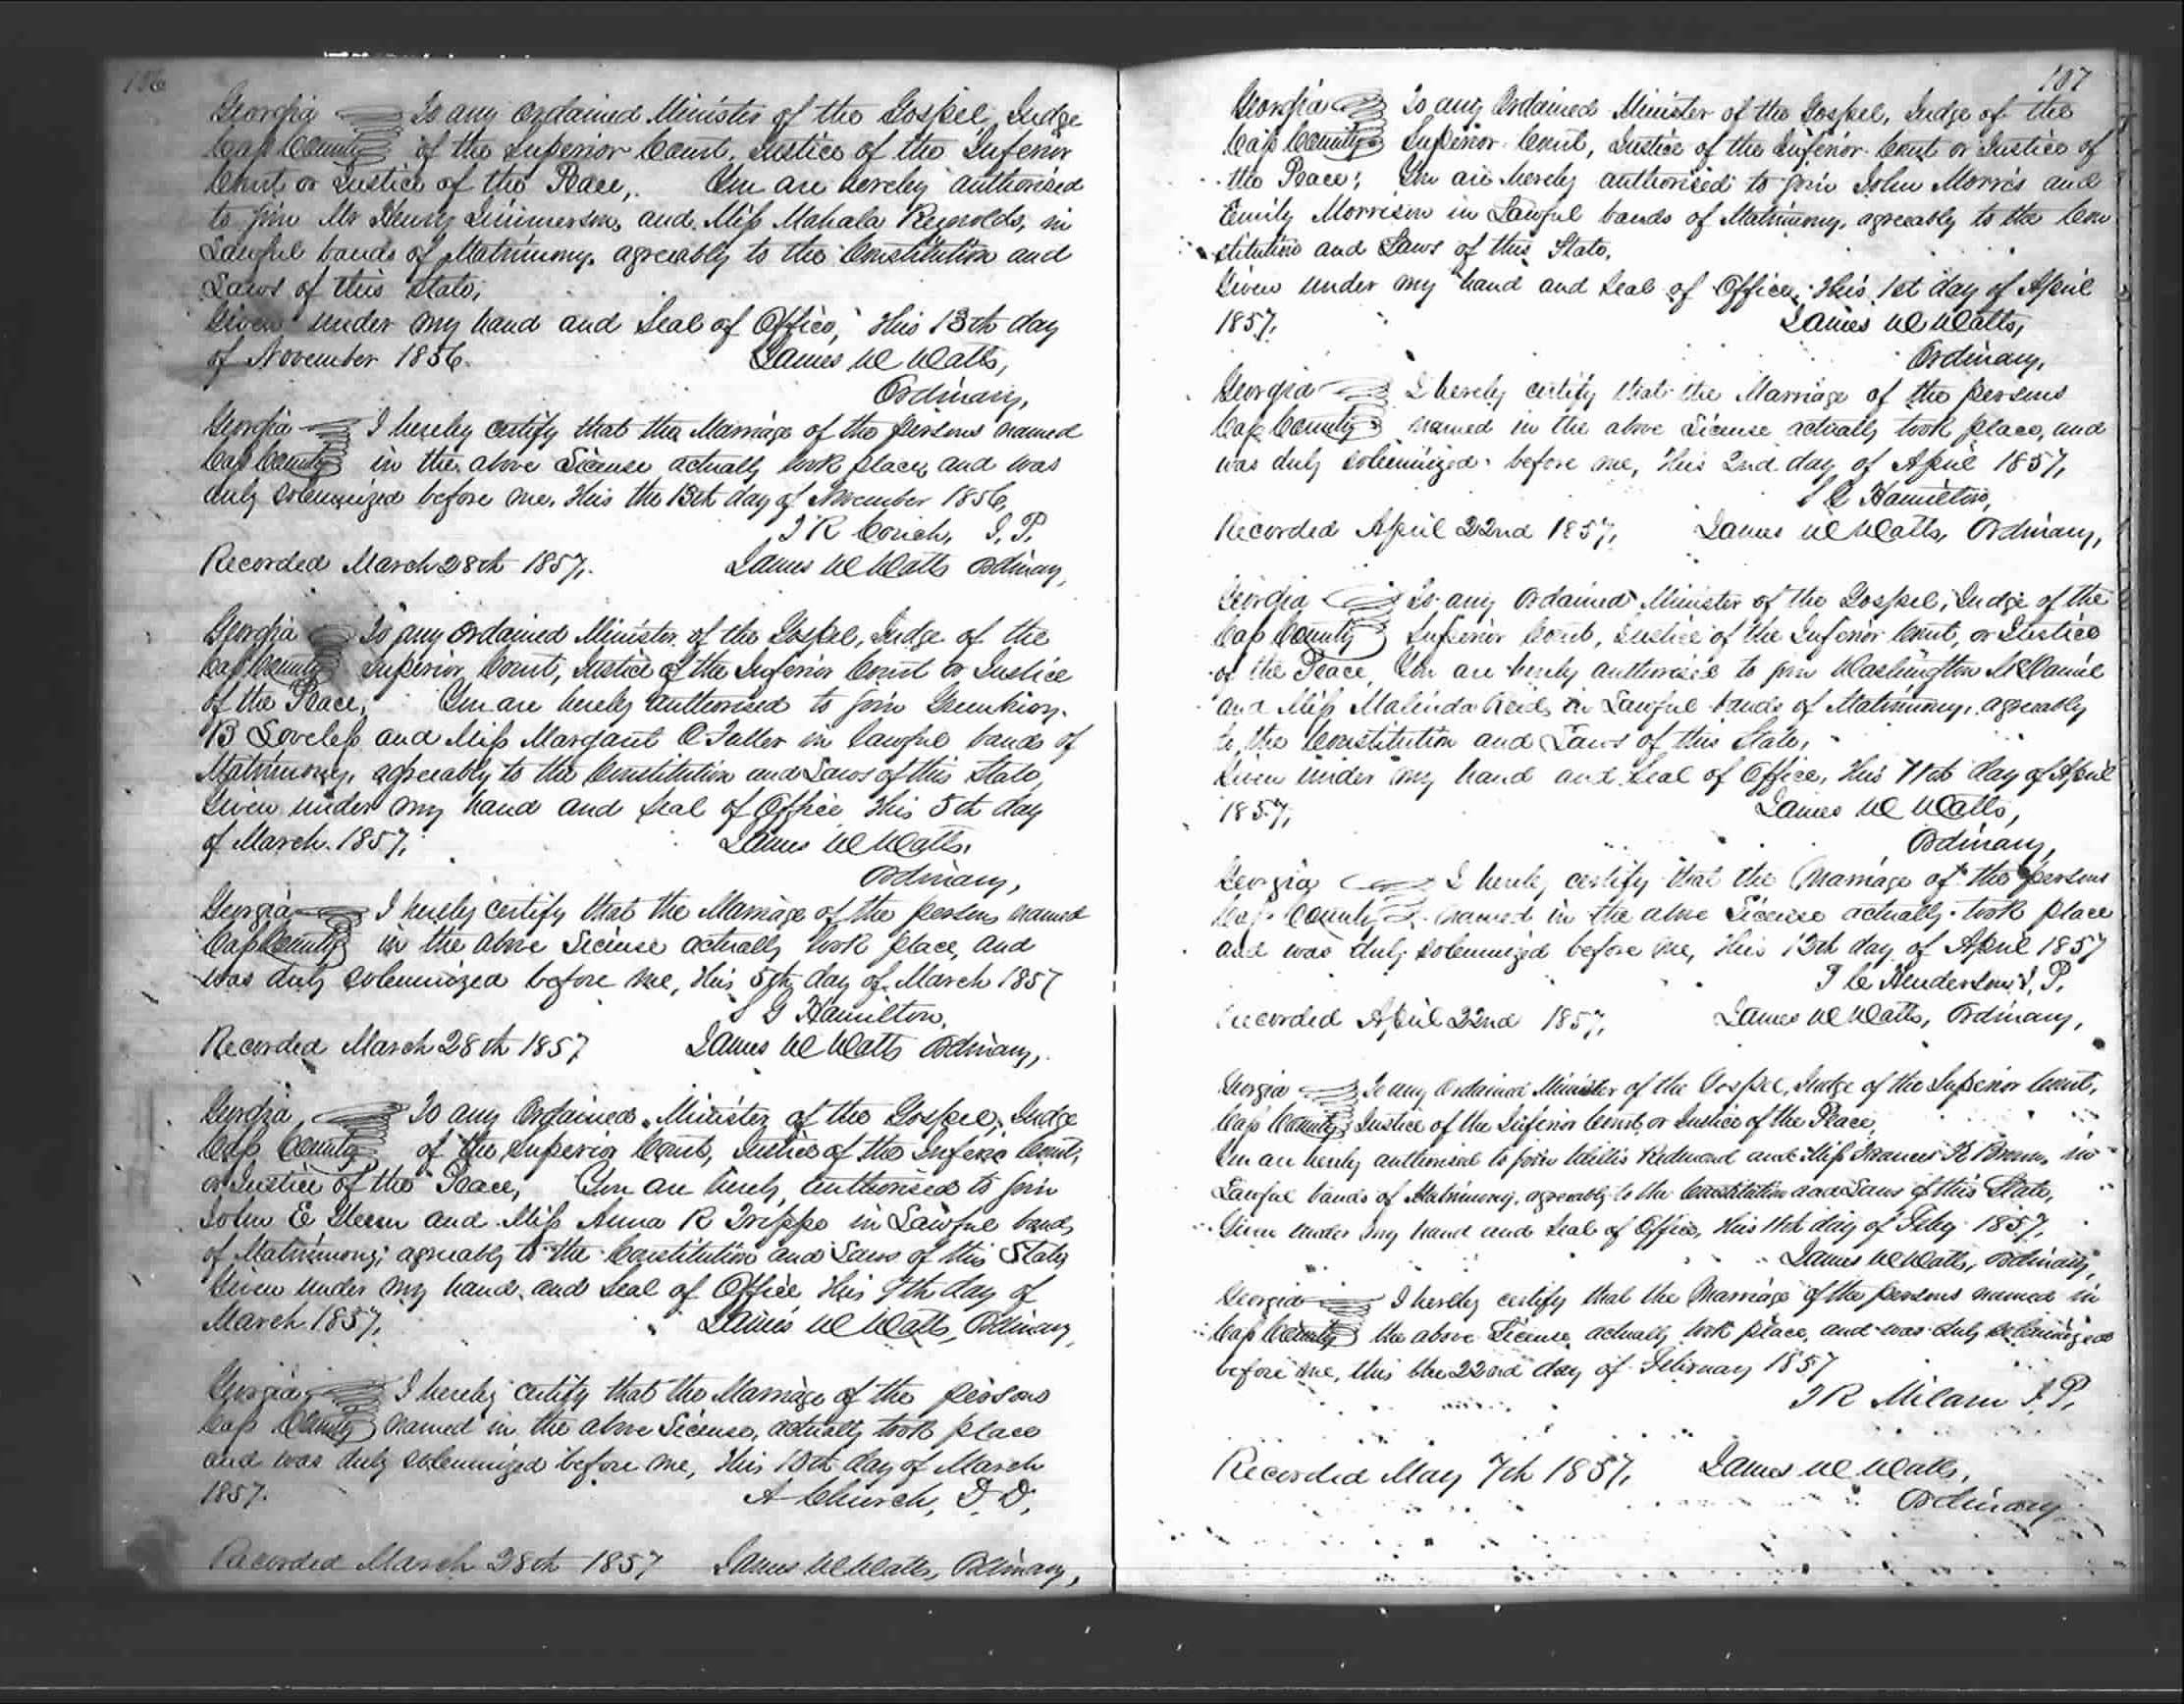 106
Georgia To any ordained Minister of the Gospel, Judge
Cass County of the Superior Court, Justice of the Inferior
Court or Justice of the Peace, You are hereby authorised
to join Mr Henry and Miss Mahala Reynolds, in
Lawful bands of Matrimony, agreeably to the Constitution and
Laws of this State,
Given under my hand and Seal of Office, this 13th day
of November 1856. James W Watts,
Ordinary,
Georgia I hereby certify that the Marriage of the persons named
Cass County in the above License actually took place, and was
duly solemnized before me, this the 13th day of November 1856,
J. P.
Recorded March 28th 1857. James W Watts Ordinary,
Georgia To any ordained Minister of the Gospel, Judge of the
Cass County Superior Court, Justice of the Inferior Court or Justice
of the Peace, You are hereby authorised to join
B Loveless and Miss Margaret in Lawful bands of
Matrimony, agreeably to the Constitution and Laws of this State,
Given under my hand and Seal of Office this 5th day
of March 1857, James W Watts,
Ordinary,
Georgia I hereby certify that the Marriage of the persons named
Cass County in the above License actually took place, and
was duly solemnized before me, this 5th day of March 1857
S G Hamilton,
Recorded March 28th 1857 James W Watts Ordinary,
Georgia To any Ordained Minister of the Gospel, Judge
Cass County of the Superior Court, Justice of the Inferior Court,
or Justice of the Peace, You are hereby authorised to join
John E Glenn and Miss Anna R Trippe in Lawful bands
of Matrimony, agreeably to the Constitution and Laws of this State,
Given under my hand and Seal of Office this 9th day of
March 1857, James W Watts, Ordinary,
Georgia I hereby certify that the Marriage of the persons
Cass County named in the above License, actually took place
and was duly solemnized before me, this day of March
1857. A Church, D. D.
Recorded March 28th 1857 James W Watts, Ordinary,
107
Georgia To any Ordained Minister of the Gospel, Judge of the
Cass County Superior Court, Justice of the Inferior Court or Justice of
the Peace; You are hereby authorised to join John Morris and
Emily Morrison in Lawful bands of Matrimony, agreeably to the Con
stitution and Laws of this State.
Given under my hand and Seal of Office, this 1st day of April
1857. James W Watts,
Ordinary,
Georgia I hereby certify that the Marriage of the persons
Cass County named in the above License actually took place, and
was duly solemnized before me, this 2nd day of April 1857,
Hamilton,
Recorded April 22nd 1857, James W Watts, Ordinary,
Georgia To any Ordained Minister of the Gospel, Judge of the
Cass County Superior Court, Justice of the Inferior Court, or Justice
of the Peace, You are hereby authorised to join Washington McDaniel
and Miss Malinda Reid, in Lawful bands of Matrimony, agreeably
to the Constitution and Laws of this State,
Given under my hand and Seal of Office, this 11th day of April
1857, James W Watts,
Ordinary,
Georgia I hereby certify that the Marriage of the persons
Cass County named in the above License actually took place
and was duly solemnized before me, this 13th day of April 1857
Henderson J. P.
Recorded April 22nd 1857, James W Watts, Ordinary,
Georgia To any Ordained Minister of the Gospel, Judge of the Superior Court,
Cass County Justice of the Inferior Court or Justice of the Peace,
You are hereby authorised to join Willis Redmond and Miss Frances Brown, in
Lawful bands of Matrimony, agreeably to the Constitution and Laws of this State,
Given under my hand and Seal of Office, this 11th day of Feby 1857,
James W Watts, Ordinary,
Georgia I hereby certify that the Marriage of the persons named in
Cass County the above License, actually took place, and was duly solemnized
before me, this the 22nd day of February 1857
Milam J. P.
Recorded May 7th 1857, James W Watts,
Ordinary